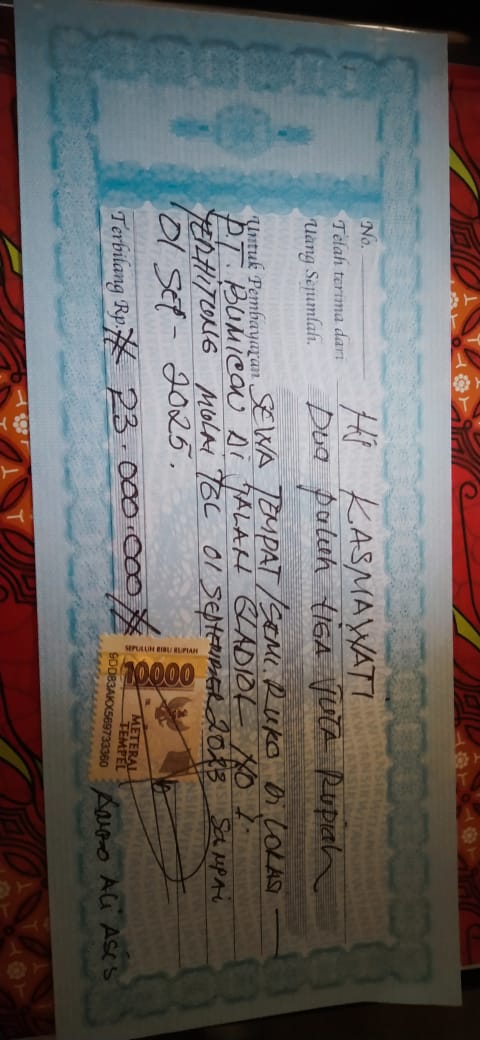 No.
Telah terima dari Hj KASMAWATI
Uang Sejumlah. Dua puluh tiga Juta Rupiah
Untuk Pembayaran SEWA TEMPAT / SEMI. RUKO Di LOKASI
PT. BUMICON Di JALAN GLADIOL NO 1.
TERHITUNG MULAI TGL 01 SEPTEMBER 2023 SAMPAI
01 SEP - 2025.
Terbilang Rp. 23.000.000
SEPULUH RIBU RUPIAH
10000
METERAI
TEMPEL
Ali Asis